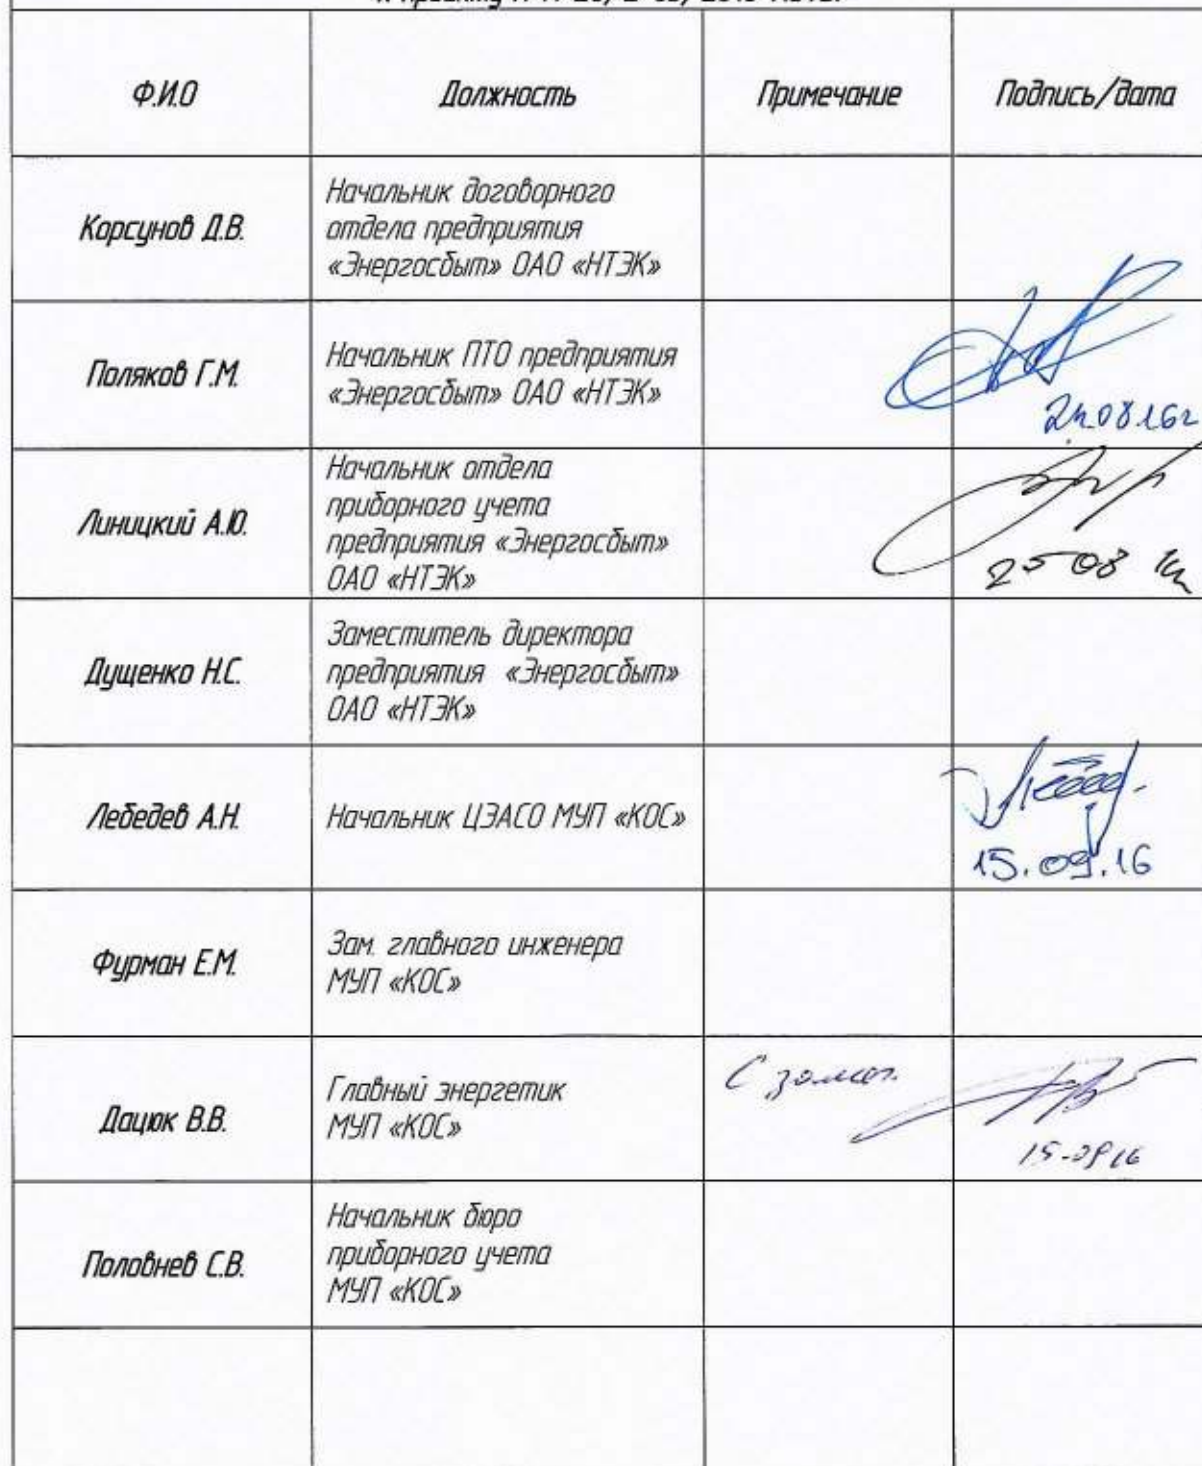 Ф.И.О
Должность
Примечание
Подпись/дата
Корсунов Д.В.
Начальник договорного
отдела предприятия
«Энергосбыт» ОАО «НТЭК»
Поляков Г.М.
Начальник ПТО предприятия
«Энергосбыт» ОАО «НТЭК»
Линицкий А.Ю.
Начальник отдела
приборного учета
предприятия «Энергосбыт»
ОАО «НТЭК»
25 08
Дущенко Н.С.
Заместитель директора
предприятия «Энергосбыт»
ОАО «НТЭК»
Лебедев А.Н.
Начальник ЦЭАСО МУП «КОС»
15.09.16
Фурман Е.М.
Зам. главного инженера
МУП «КОС»
Дацюк В.В.
Главный энергетик
МУП «КОС»
С замеч.
15.09 16
Половнев С.В.
Начальник бюро
приборного учета
МУП «КОС»